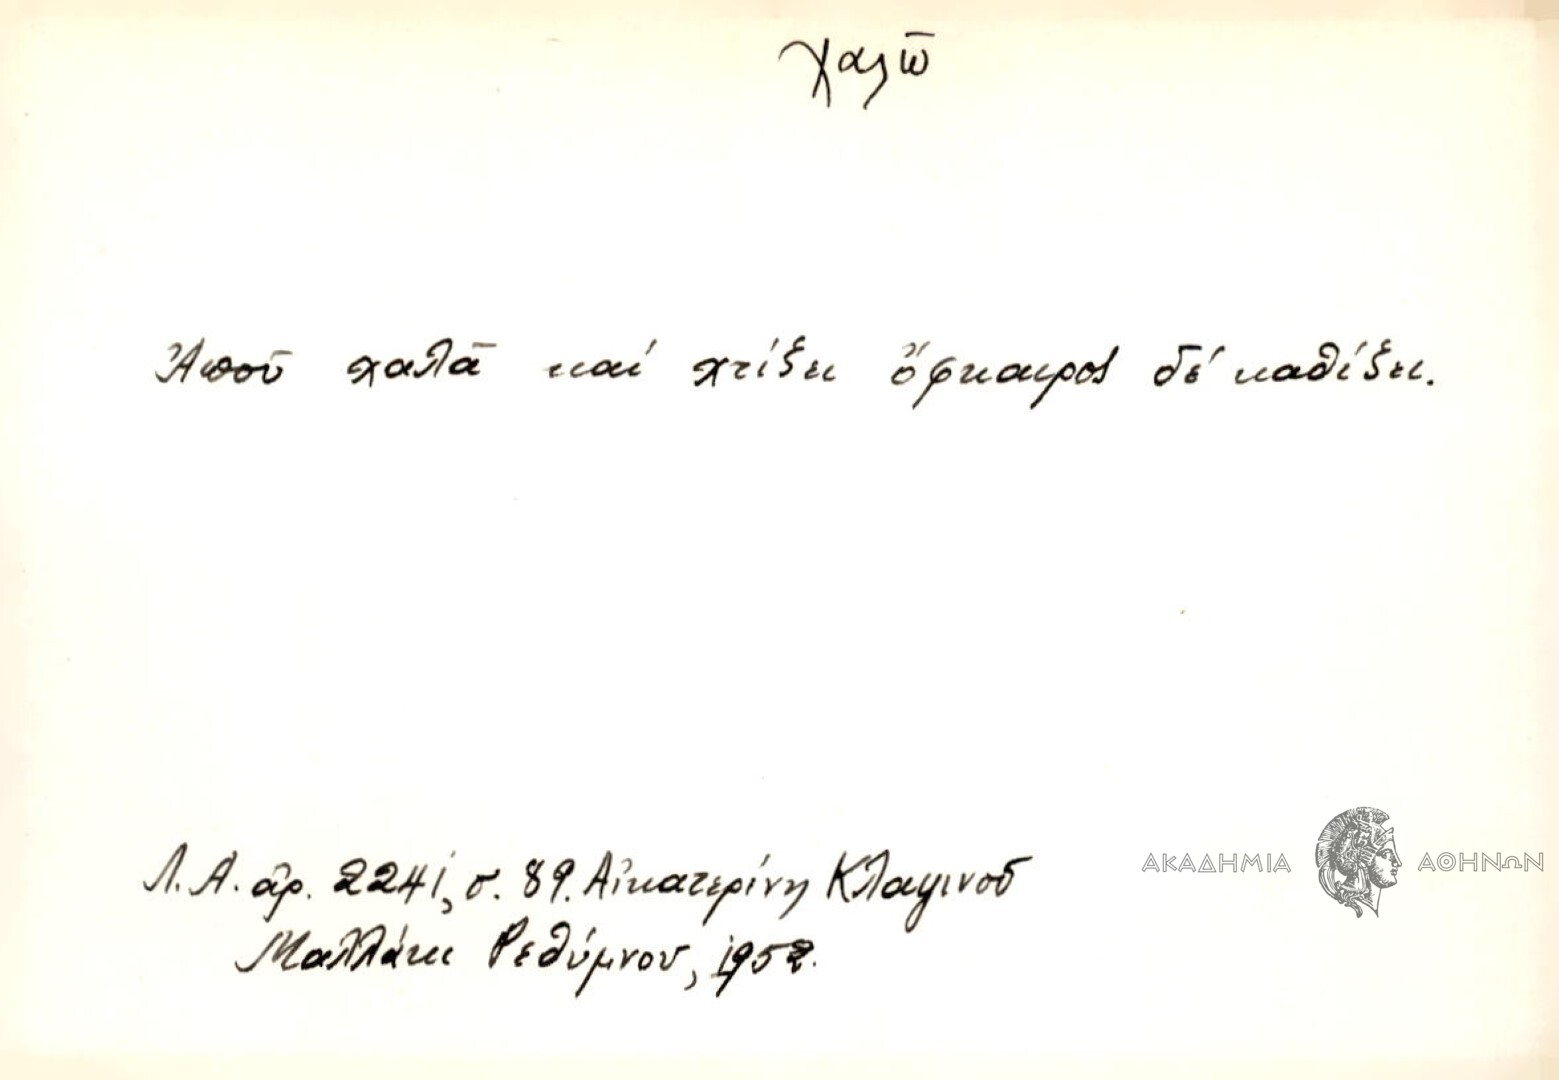 χαλῶ
Ἀποῦ χαλᾶ καί χτίζει ὄφκαιρος δέ καθίζει.
Λ.Α. ἀρ. 2241, σ. 89. Αἰκατερίνη
Μαλλάκι Ρεθύμνου, 1952.
ΑΚΑΔΗΜΙΑ ΑΘΗΝΩΝ